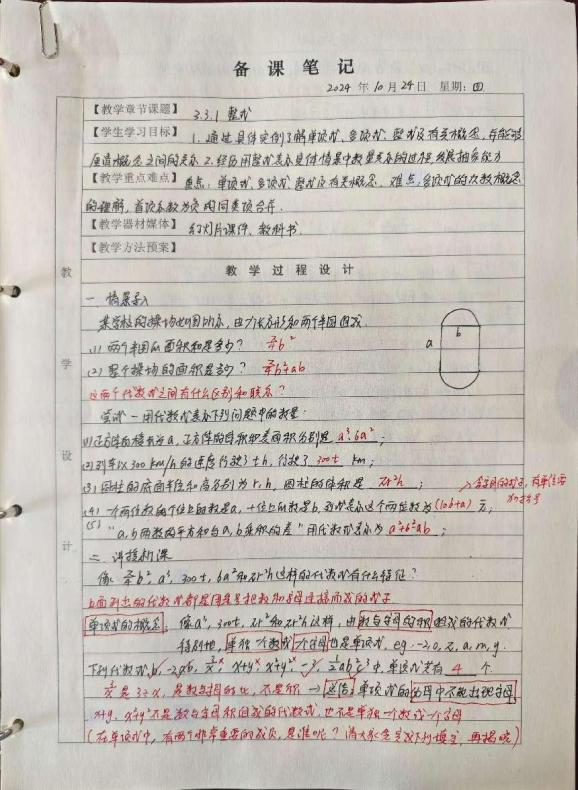 备课笔记
2024年10月24日 星期:四
【教学章节课题】 3.3.1 整式
【学生学习目标】 1.通过具体实例了解单项式、多项式、整式及有关概念,并能够
厘清概念之间的关系 2.经历用整式表示具体情景中数量关系的过程,发展抽象能力
【教学重点难点】 重点:单项式、多项式、整式及有关概念. 难点:多项式的次数概念
的理解,首项系数为负
【教学器材媒体】 幻灯片课件、教科书
【教学方法预案】
教学过程设计
教
学
设
计
一、情景导入
某学校的操场如图所示,由 长方形和两个半圆组成.
(1)两个半圆的面积和是多少? π/4 b²
(2)整个操场的面积是多少? π/4 b²+ab
这两个代数式之间有什么区别和联系?
a
b
尝试一 用代数式表示下列问题中的数量:
(1)正方体的棱长为a,正方体的体积和表面积分别是 a³, 6a²;
(2)列车以300 km/h的速度行驶了t h,行驶了 300t km;
(3)圆柱的底面半径和高分别为r、h,圆柱的体积是 πr²h;
(4)一个两位数的个位上的数是a,十位上的数是b, 这个两位数为(10b+a)
→含加减的式子,有单位要加括号
(5)“a,b两数的平方和与a,b乘积的差”用代数式表示为 a²+b²-ab;
二、讲授新课
像 π/4 b²,a³,300t,6a²和πr²h这样的代数式有什么特征?
上面列出的代数式都是用乘号把数和字母连接而成的式子
单项式的概念:像a³,300t,6a²和πr²h这样,由数与字母的积组成的代数式
特别地,单独一个数或一个字母也是单项式. eg: -2,0,π,a,m,y.
下列代数式b,-2ab,3/x,x+y,x²+y²,-1,½ab²c³中,单项式共有 4 个.
3/x是3÷x,是数与字母的比,不是积 → 总结:单项式的分母中不能出现字母
x+y,x²+y²不是数与字母积组成的代数式,也不是单独一个数或一个字母
(在单项式中,有两个非常重要的成员,是谁呢?请大家先完成下列填空,再揭晓)